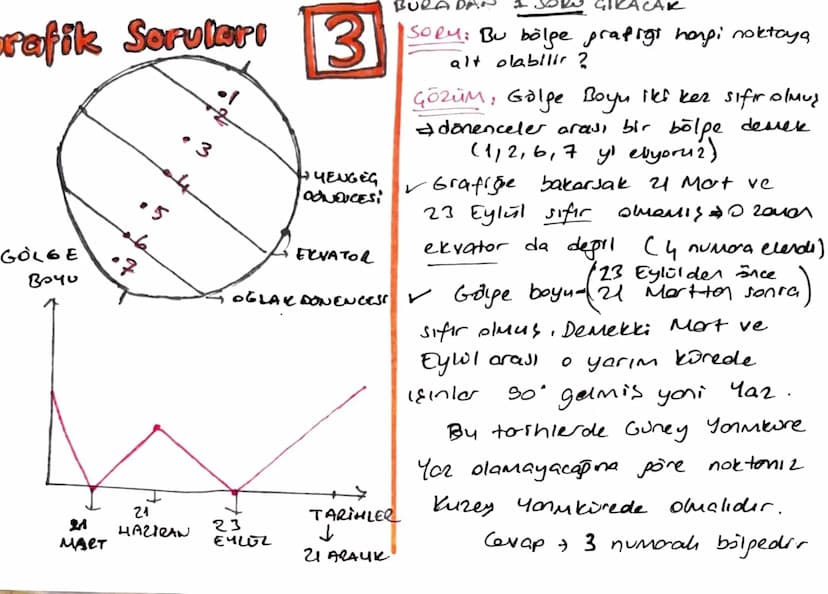 Grafik Soruları
3
1
2
3
4
5
6
7
YENGEÇ
DÖNENCESİ
EKVATOR
OĞLAK DÖNENCESİ
GÖLGE
BOYU
21
MART
21
HAZİRAN
23
EYLÜL
TARİHLER
21 ARALIK
BURADAN 1 SORU ÇIKACAK
SORU: Bu bölge grafiği hangi noktaya
ait olabilir?
ÇÖZÜM: Gölge Boyu iki kez sıfır olmuş
⇒ dönenceler arası bir bölge demek
(1, 2, 6, 7 yi eliyoruz)
✓ Grafiğe bakarsak 21 Mart ve
23 Eylül sıfır olmamış ⇒ O zaman
ekvator da değil (4 numara elendi)
✓ Gölge boyu (23 Eylülden önce
21 Marttan sonra)
sıfır olmuş. Demekki Mart ve
Eylül arası o yarım kürede
ışınlar 90° gelmiş yani Yaz.
Bu tarihlerde Güney Yarımküre
Yaz olamayacağına göre noktamız
Kuzey Yarımkürede olmalıdır.
Cevap → 3 numaralı bölgedir